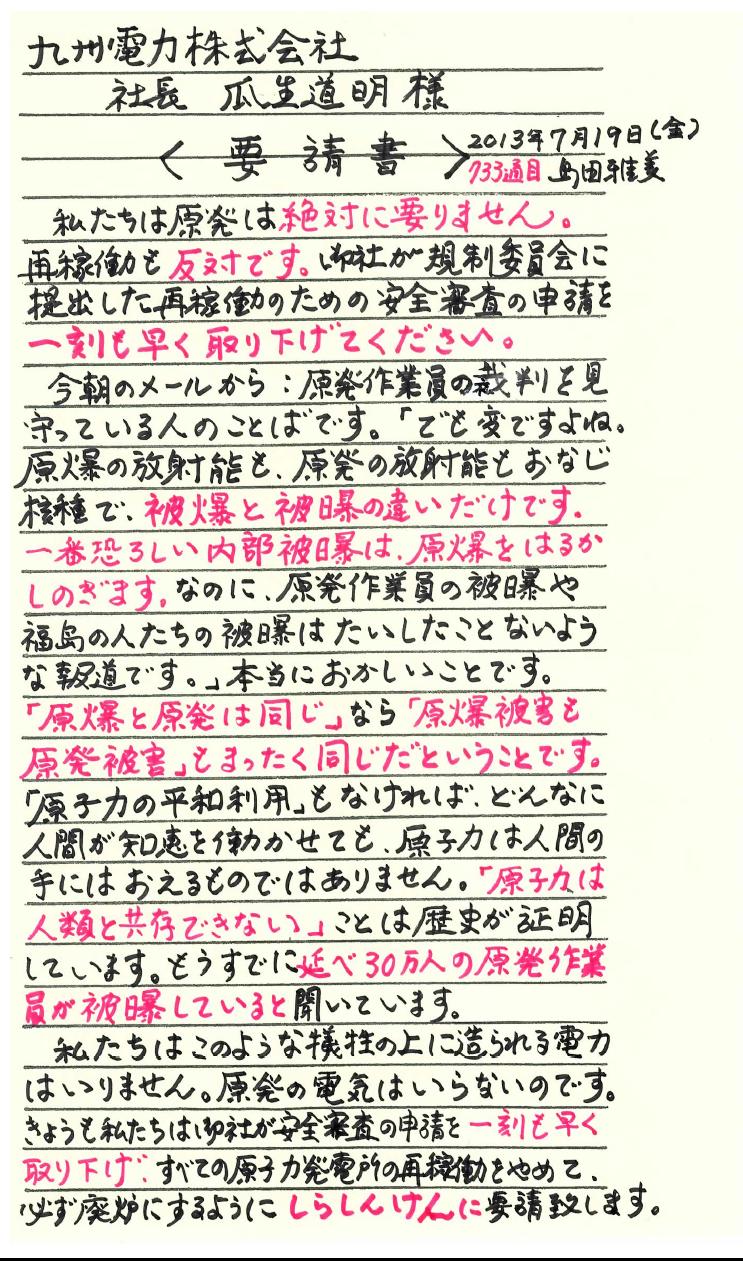 九州電力株式会社
社長 瓜生道明様
〈要請書〉
2013年7月19日(金)
733通目 島田雅美
私たちは原発は絶対に要りません。
再稼働も反対です。御社が規制委員会に
提出した再稼働のための安全審査の申請を
一刻も早く取り下げてください。
今朝のメールから：原発作業員の裁判を見
守っている人のことばです。「でも変ですよね。
原爆の放射能も、原発の放射能もおなじ
核種で、被爆と被曝の違いだけです。
一番恐ろしい内部被曝は、原爆をはるか
しのぎます。なのに、原発作業員の被曝や
福島の人たちの被曝はたいしたことないよう
な報道です。」本当におかしいことです。
「原爆と原発は同じ」なら「原爆被害も
原発被害」もまったく同じだということです。
「原子力の平和利用」もなければ、どんなに
人間が知恵を働かせても、原子力は人間の
手にはおえるものではありません。「原子力は
人類と共存できない」ことは歴史が証明
しています。もうすでに延べ30万人の原発作業
員が被曝していると聞いています。
私たちはこのような犠牲の上に造られる電力
はいりません。原発の電気はいらないのです。
きょうも私たちは御社が安全審査の申請を一刻も早く
取り下げ、すべての原子力発電所の再稼働をやめて、
必ず廃炉にするようにしらしんけんに要請致します。